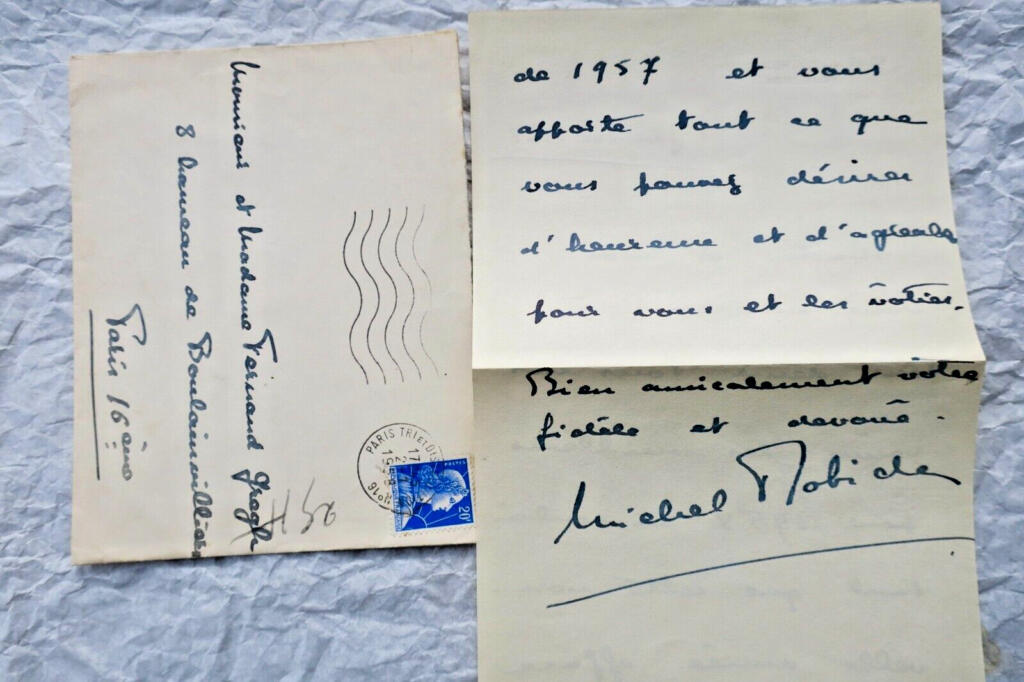 Monsieur et Madame Fernand Gregh
8 hameau de Boulainvilliers
Paris 16 ème
PARIS TRI et DIS
17
2
1958
N°16
POSTES
20F
de 1957 et vous
apporte tout ce que
vous pouvez désirer
d'heureux et d'agréable
pour vous et les vôtres.
Bien amicalement votre
fidèle et dévoué.
Michel Robida